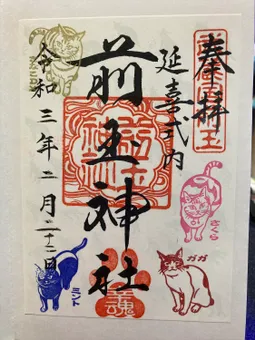 奉拝
延喜式内
前玉神社
令和三年二月二十二日
きなこ
さくら
ガガ
ミント
魂